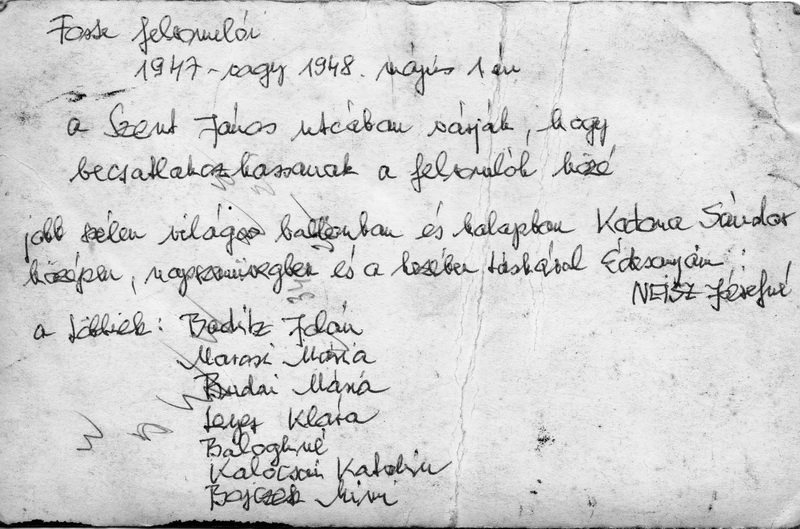 felvonulói
1947-vagy 1948. május 1 én
a Szent János utcában várják, hogy
becsatlakozhassanak a felvonulók közé
jobb szélen világos ballonban és kalapban Katona Sándor
középen, napszemüvegben és a kezében táskával Édesanyám :
NEISZ Józsefné
a többiek: Boditz Jolán
Marosi Mária
Budai Mária
Klára
Baloghné
Kalocsai Katalin
Bojczek Mimi